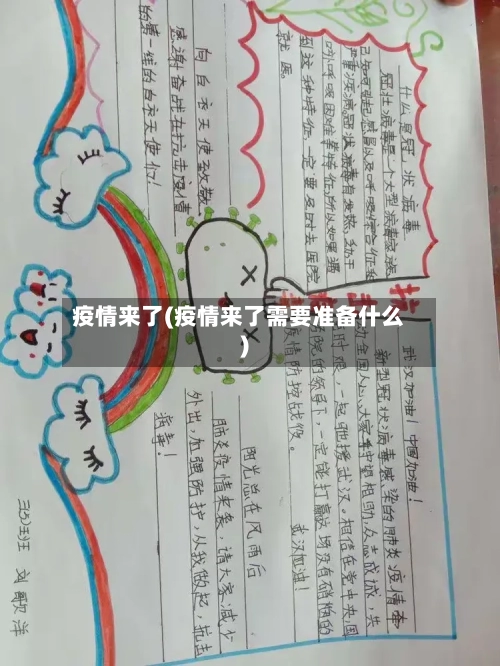 什么是冠状病毒
冠壮病毒是个大型病毒家族
已知可引起感冒以及呼吸综合征和
严重疾病冠状病毒有发热、动力
呼吸困难等特征所以如果遇
到这种特征一定要及时去医院
就医
向白衣天使致敬
感谢奋战在抗击疫情
的第一线的白衣天使们!
抗击病毒
疫情来了(疫情来了需要准备什么
)
武汉加油!中国加油!
新型冠状病毒感染的肺炎疫情牵
动全国人心,大家守望相助,众志成城,共
时艰,一起驰援武汉。相信在党中央、国
务院的领导下,一定能打赢这场没有硝烟的
疫情防控战役。
武汉加油!
阳光总在风雨后
肺炎疫情来袭,请大家减少
外出,加强防护,从我做起,抗击
病毒!
3(3)班 刘歌洋